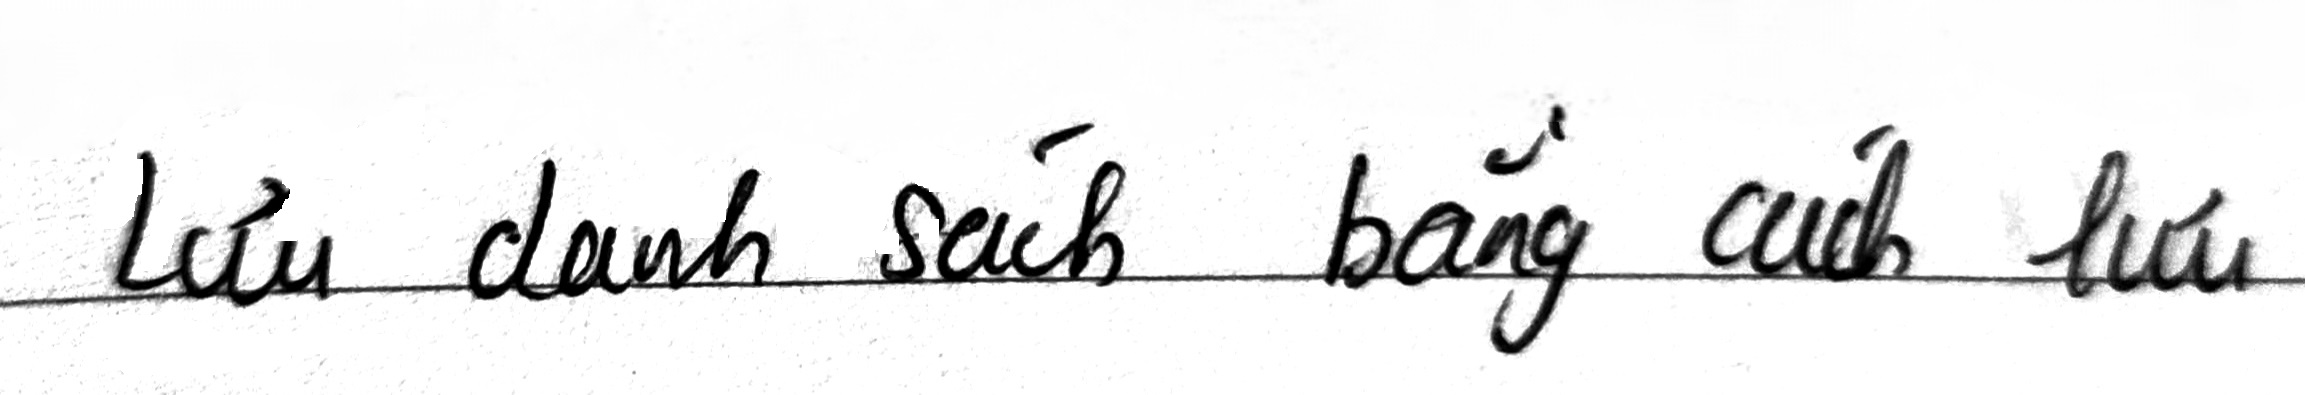 Lưu danh sách bằng cách lưu